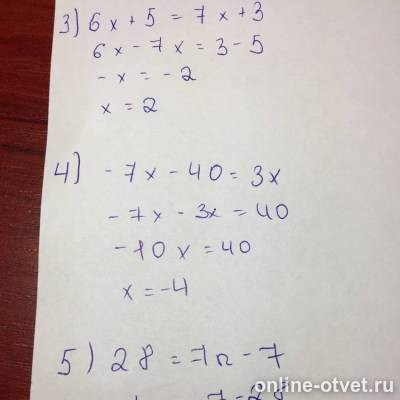 3) 6x + 5 = 7x + 3
6x - 7x = 3 - 5
- x = - 2
x = 2
4) - 7x - 40 = 3x
- 7x - 3x = 40
- 10x = 40
x = -4
5) 28 = 7n - 7
7 - 28
online-otvet.ru